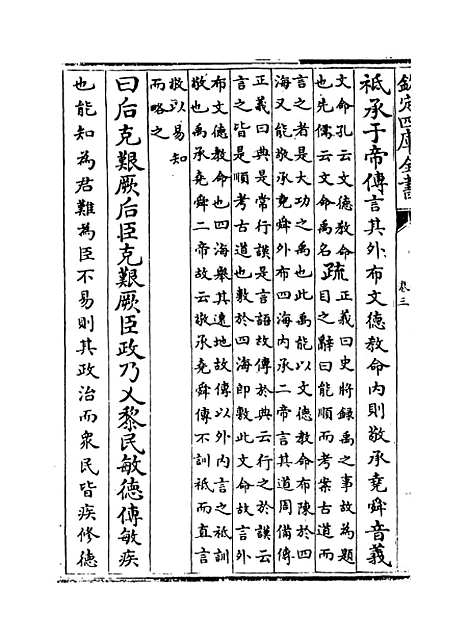 欽定四庫全書
卷三
祗承于帝傳言其外布文德教命内則敬承堯舜音義
文命孔云文德教命
也先儒云文命禹名
疏
正義曰史將録禹之事故為題
目之辭曰能順而考案古道而
言之者是大功之禹也此禹能以文德教命布陳於四
海又能敬承堯舜外布四海内承二帝言其道周備傳
正義曰典是常行謨是言語故傳於典云行之於謨云
言之皆是順考古道也敷於四海即敷此文命故言外
布文德教命也四海舉其遠地故傳以外内言之祗訓
敬也禹承堯舜二帝故云敬承堯舜傳不訓祗而直言
敬以易知
而略之
曰后克艱厥后臣克艱厥臣政乃乂黎民敏德傳敏疾
也能知為君難為臣不易則其政治而衆民皆疾修德